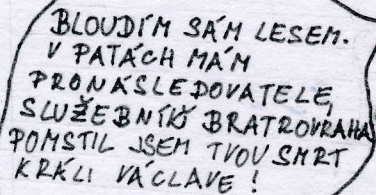 BLOUDÍM SÁM LESEM.
V PATÁCH MÁM
PRONÁSLEDOVATELE,
SLUŽEBNÍKŮ BRATROVRAHA
POMSTIL JSEM TVOU SMRT
KRÁLI VÁCLAVE!